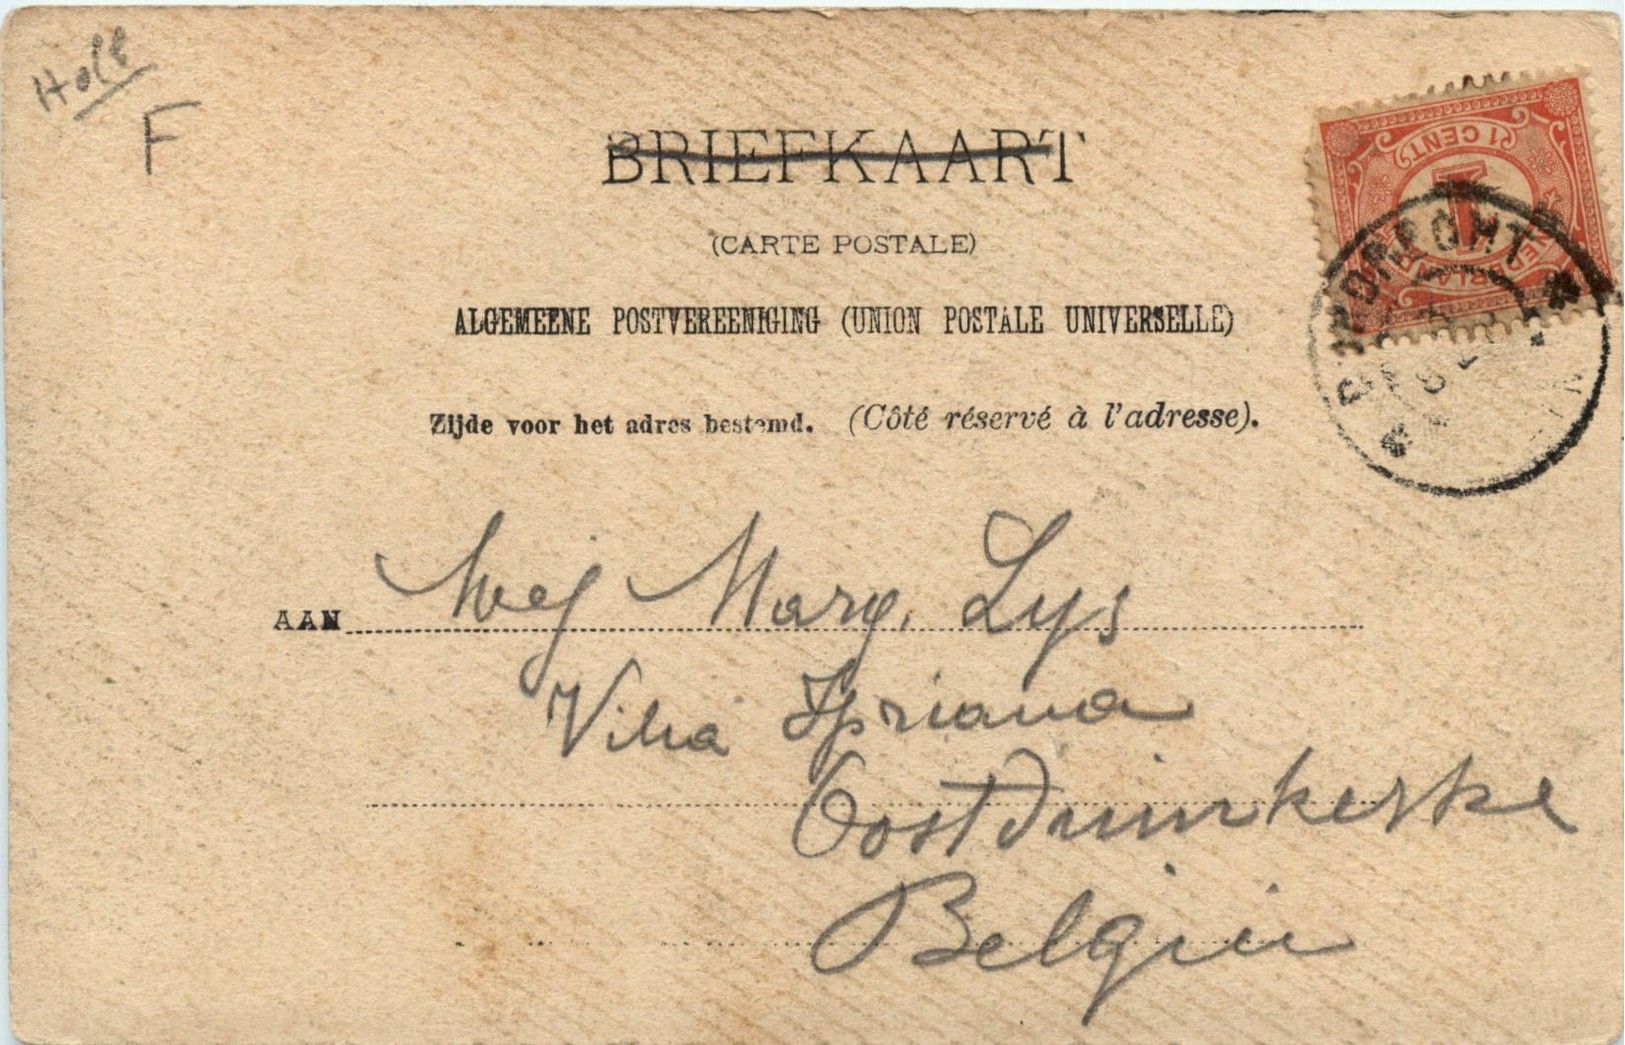 Holl
F
BRIEFKAART
(CARTE POSTALE)
ALGEMEENE POSTVEREENIGING (UNION POSTALE UNIVERSELLE)
Zijde voor het adres bestemd. (Côté réservé à l'adresse).
1 CENT
1
NEDERLAND
DORDRECHT
AAN Mej Marg. Lys
Villa Ypriana
Oostduinkerke
Belgien